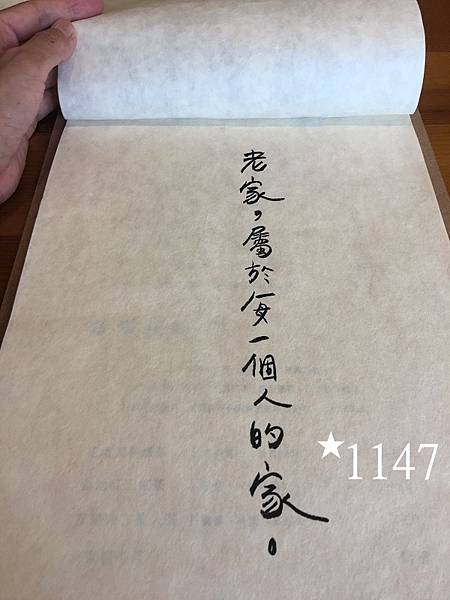 老家，屬於每一個人的家。
★1147